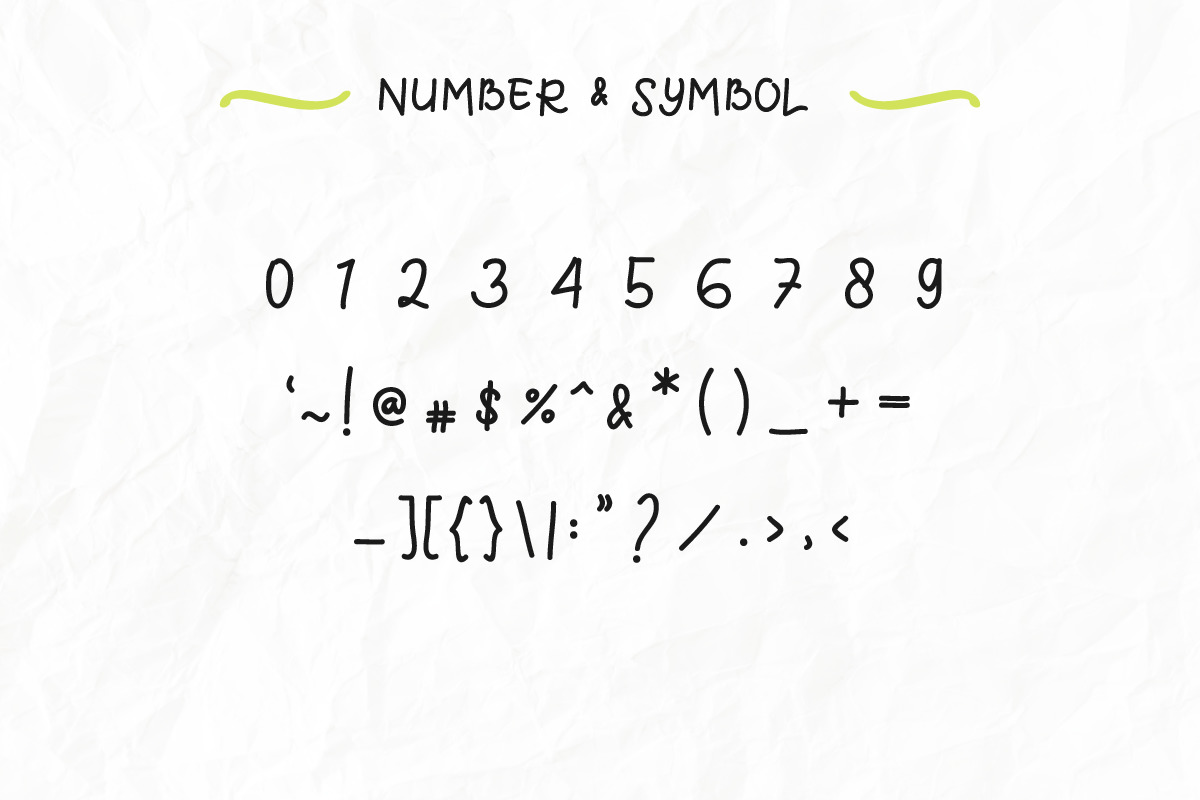 NUMBER & SYMBOL
0 1 2 3 4 5 6 7 8 9
‘ ~ ! @ # $ % ^ & * ( ) _ + =
– ] [ { } \ | : ” ? / . > , <